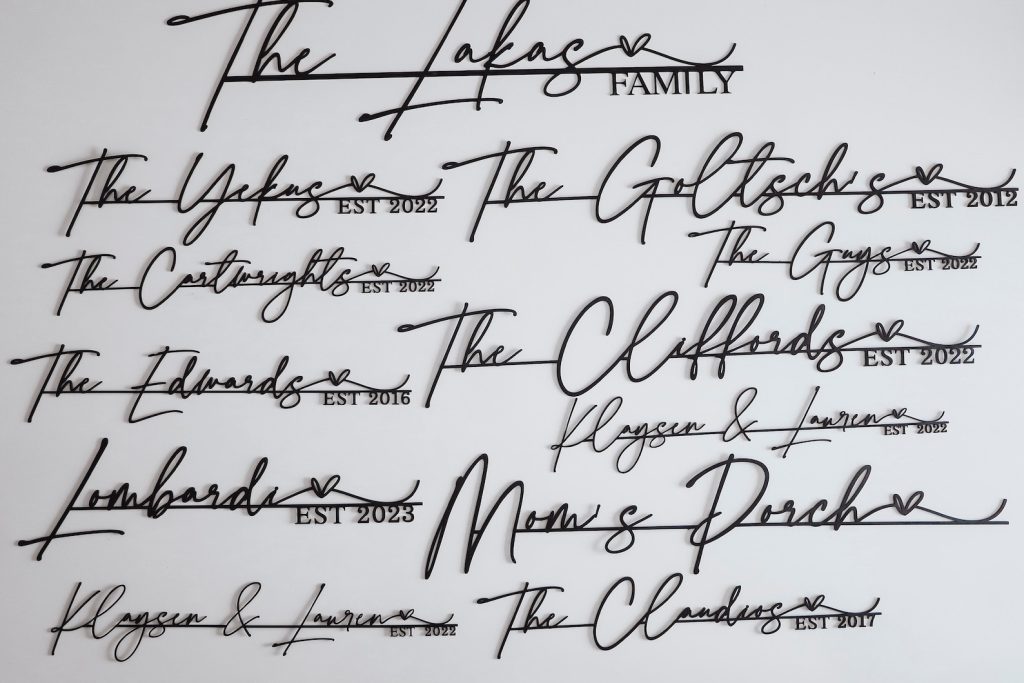 The Lakas
FAMILY
The Yekus
EST 2022
The Goltsch's
EST 2012
The Cartwrights
EST 2022
The Guys
EST 2022
The Cliffords
EST 2022
The Edwards
EST 2016
Klaysen & Lauren
EST 2022
Lombardi
EST 2023
Mom's Porch
Klaysen & Lauren
EST 2022
The Claudios
EST 2017